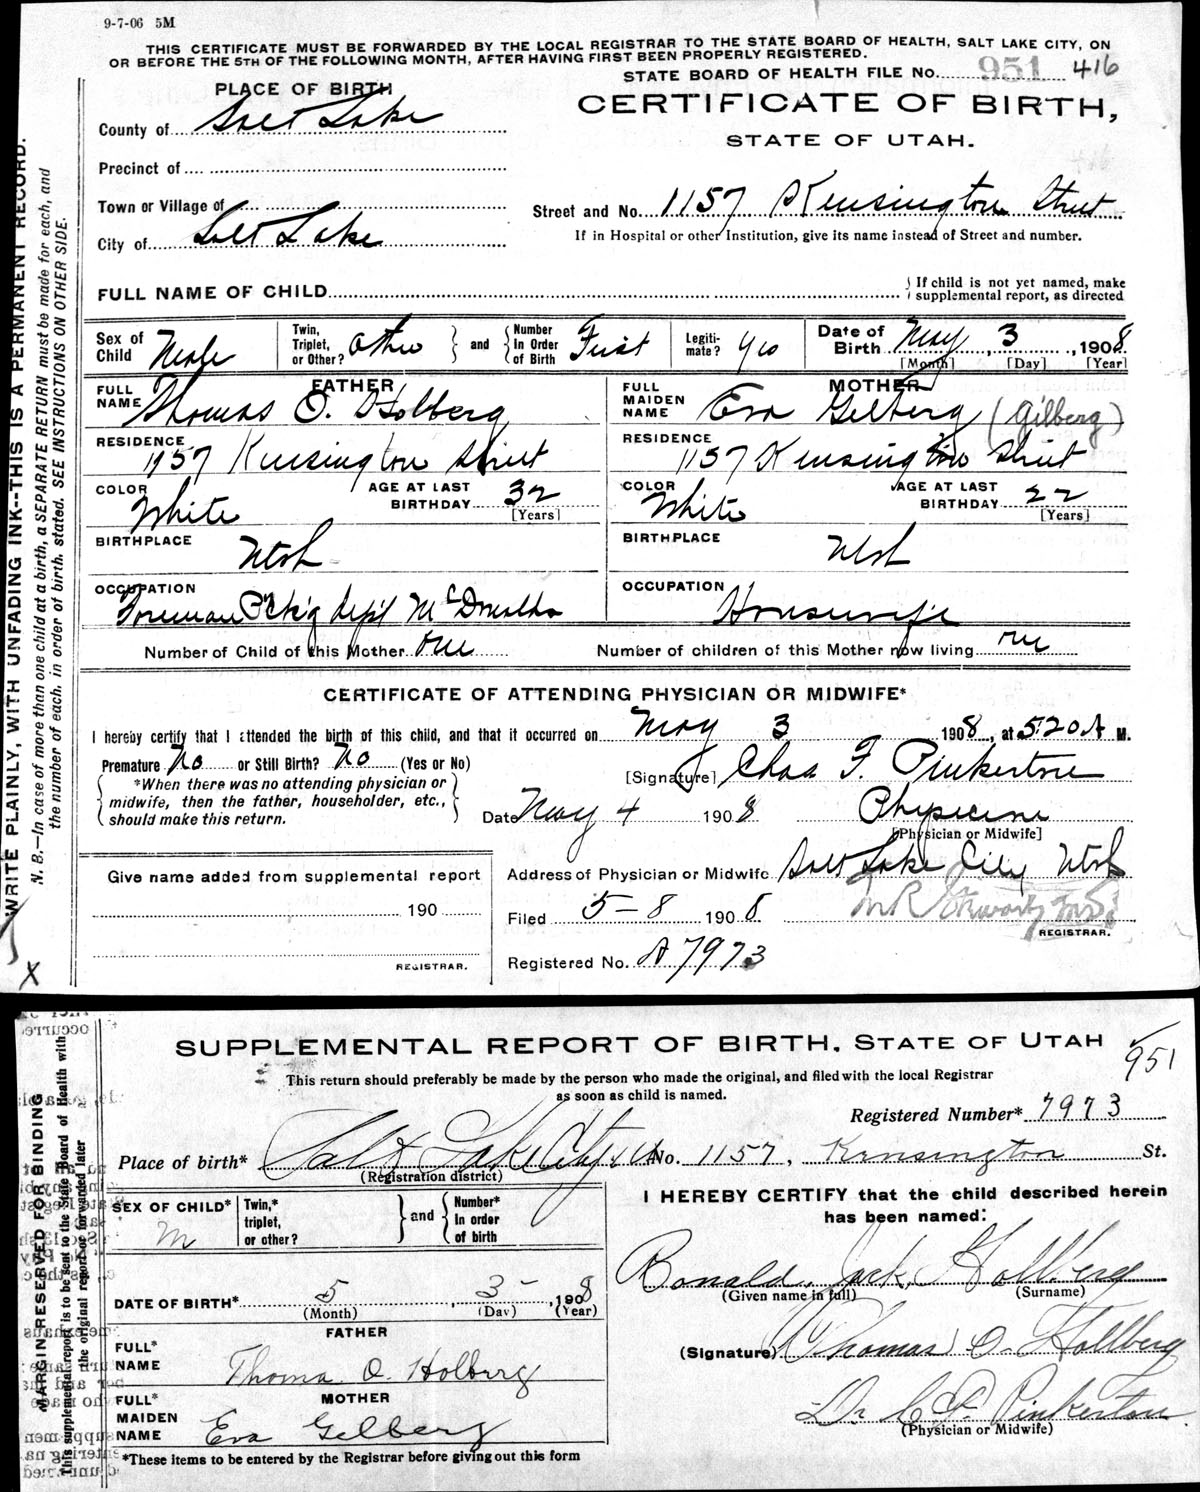 9-7-06 5M
THIS CERTIFICATE MUST BE FORWARDED BY THE LOCAL REGISTRAR TO THE STATE BOARD OF HEALTH, SALT LAKE CITY, ON
OR BEFORE THE 5TH OF THE FOLLOWING MONTH, AFTER HAVING FIRST BEEN PROPERLY REGISTERED.
STATE BOARD OF HEALTH FILE No. 951 416
PLACE OF BIRTH
CERTIFICATE OF BIRTH,
STATE OF UTAH.
County of Salt Lake
Precinct of
Town or Village of
City of Salt Lake
Street and No. 1157 Kensington Street
If in Hospital or other Institution, give its name instead of Street and number.
FULL NAME OF CHILD
If child is not yet named, make
supplemental report, as directed
Sex of Child Male
Twin, Triplet, or Other? Other and Number In Order of Birth First
Legiti-mate? yes
Date of Birth May 3, 1908
[Month] [Day] [Year]
FATHER
FULL NAME Thomas O. Holberg
MOTHER
FULL MAIDEN NAME Eva Gelberg (Gilberg)
RESIDENCE 1157 Kensington Street
RESIDENCE 1157 Kensington Street
COLOR White AGE AT LAST BIRTHDAY 32 [Years]
COLOR White AGE AT LAST BIRTHDAY 22 [Years]
BIRTHPLACE Utah
BIRTHPLACE Utah
OCCUPATION Foreman P'ck'g dep't McDonalds
OCCUPATION Housewife
Number of Child of this Mother one
Number of children of this Mother now living one
CERTIFICATE OF ATTENDING PHYSICIAN OR MIDWIFE*
I hereby certify that I attended the birth of this child, and that it occurred on May 3 1908, at 5:20 A M.
Premature No or Still Birth? No (Yes or No)
*When there was no attending physician or
midwife, then the father, householder, etc.,
should make this return.
[Signature] Chas F. Pinkerton
Date May 4 1908 Physician
[Physician or Midwife]
Address of Physician or Midwife Salt Lake City Utah
Give name added from supplemental report
190
REGISTRAR.
Filed 5-8 1908
REGISTRAR.
Registered No. A 7973
X
WRITE PLAINLY, WITH UNFADING INK--THIS IS A PERMANENT RECORD.
N. B.—In case of more than one child at a birth, a SEPARATE RETURN must be made for each, and
the number of each, in order of birth, stated. SEE INSTRUCTIONS ON OTHER SIDE.
SUPPLEMENTAL REPORT OF BIRTH, STATE OF UTAH
951
This return should preferably be made by the person who made the original, and filed with the local Registrar
as soon as child is named.
Registered Number* 7973
Place of birth* Salt Lake City Ut No. 1157, Kensington St.
(Registration district)
SEX OF CHILD* M
Twin,* triplet, or other? and Number* In order of birth
I HEREBY CERTIFY that the child described herein
has been named:
Ronald Jack Hollberg
(Given name in full) (Surname)
DATE OF BIRTH* 5 3- 1908
(Month) (Day) (Year)
FATHER
FULL* NAME Thomas O. Holberg
(Signature) Thomas O. Hollberg
MOTHER
FULL* MAIDEN NAME Eva Gelberg
Dr C. F. Pinkerton
(Physician or Midwife)
*These items to be entered by the Registrar before giving out this form
MARGIN RESERVED FOR BINDING
This supplemental report is to be sent to the State Board of Health with
the original report or forwarded later